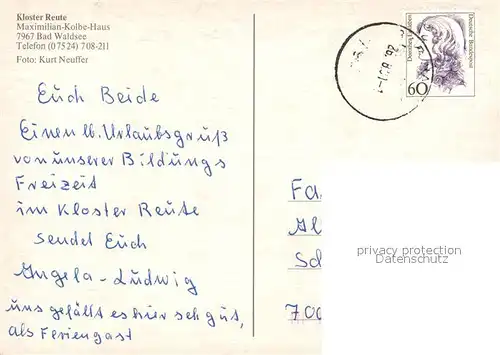 Kloster Reute
Maximilian-Kolbe-Haus
7967 Bad Waldsee
Telefon (07524) 708-211
Foto: Kurt Neuffer
Euch Beide
Einen lb. Urlaubsgruß
von unserer Bildungs
Freizeit
im Kloster Reute
sendet Euch
Angela - Ludwig
uns gefällt es hier seh gut,
als Feriengast
Deutsche Bundespost
60
92
Fa
privacy protection
Datenschutz
700